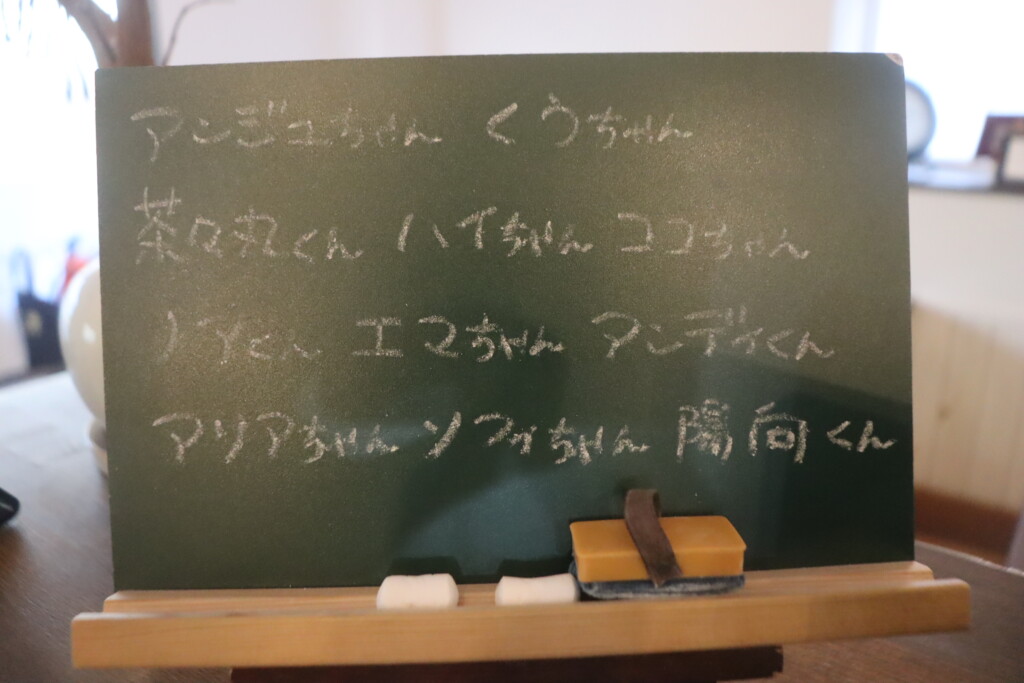 アンジュちゃん くうちゃん
茶々丸くん ハイちゃん ココちゃん
ノアくん エマちゃん アンディくん
アリアちゃん ソフィちゃん 陽向くん